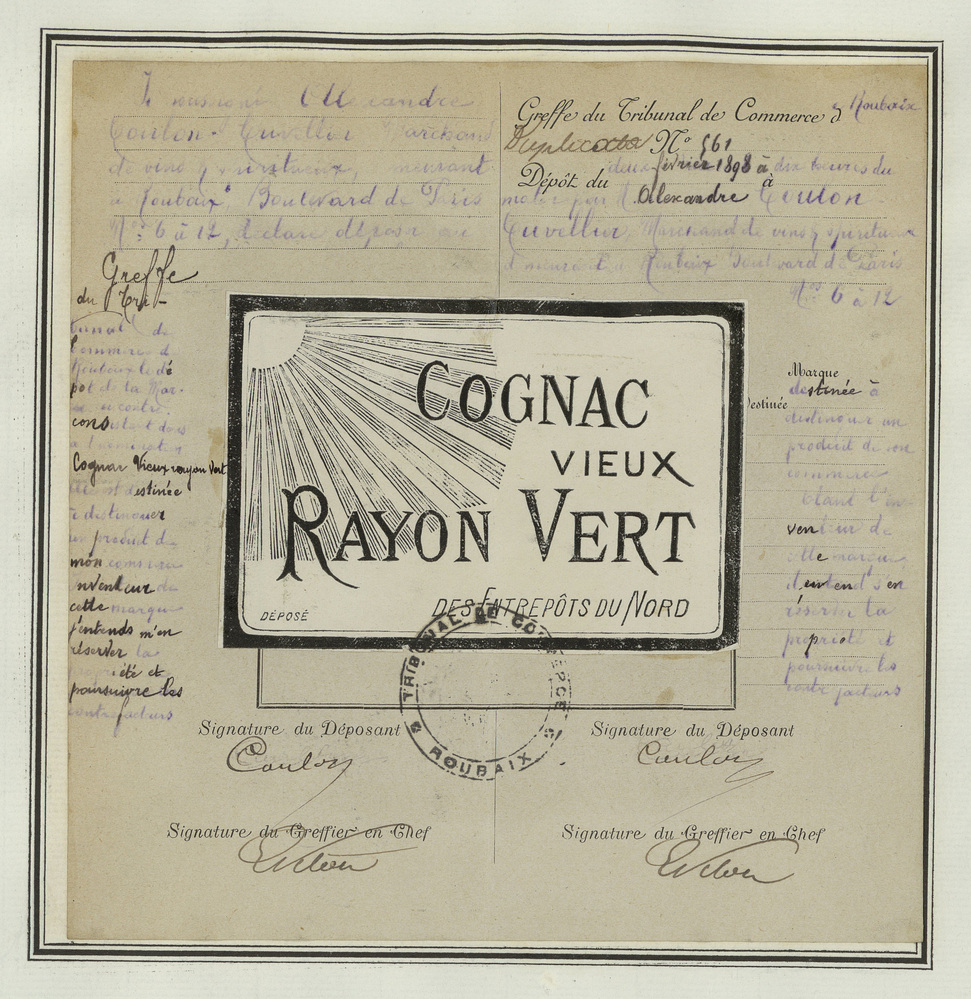 Je soussigné Alexandre
Coulon-Cuvellier Marchand
de vins & spiritueux, demeurant
à Roubaix, Boulevard de Paris
Nos 6 à 12, déclare déposer au
Greffe
du Tri-
bunal de
Commerce de
Roubaix le dé
pot de la Mar-
que ci-contre
consistant dans
la dénomination
Cognac Vieux rayon Vert
elle est destinée
à distinguer
un produit de
mon commerce
inventeur de
cette marque
j'entends m'en
réserver la
propriété et
poursuivre les
contrefacteurs
Greffe du Tribunal de Commerce d Roubaix
Duplicata No 561
Dépôt du deux février 1898 à dix heures du
matin par M. Alexandre Coulon
Cuvellier, Marchand de vins & spiritueux
demeurant à Roubaix Boulevard de Paris
Nos 6 à 12
Marque
Destinée destinée à
distinguer un
produit de son
commerce
Etant l'in-
venteur de
cette marque
il entend s'en
réserver la
propriété et
poursuivre les
contrefacteurs
COGNAC
VIEUX
RAYON VERT
DES ENTREPÔTS DU NORD
DÉPOSÉ
TRIBUNAL DE COMMERCE
ROUBAIX
Signature du Déposant
Coulon
Signature du Déposant
Coulon
Signature du Greffier en Chef
Signature du Greffier en Chef